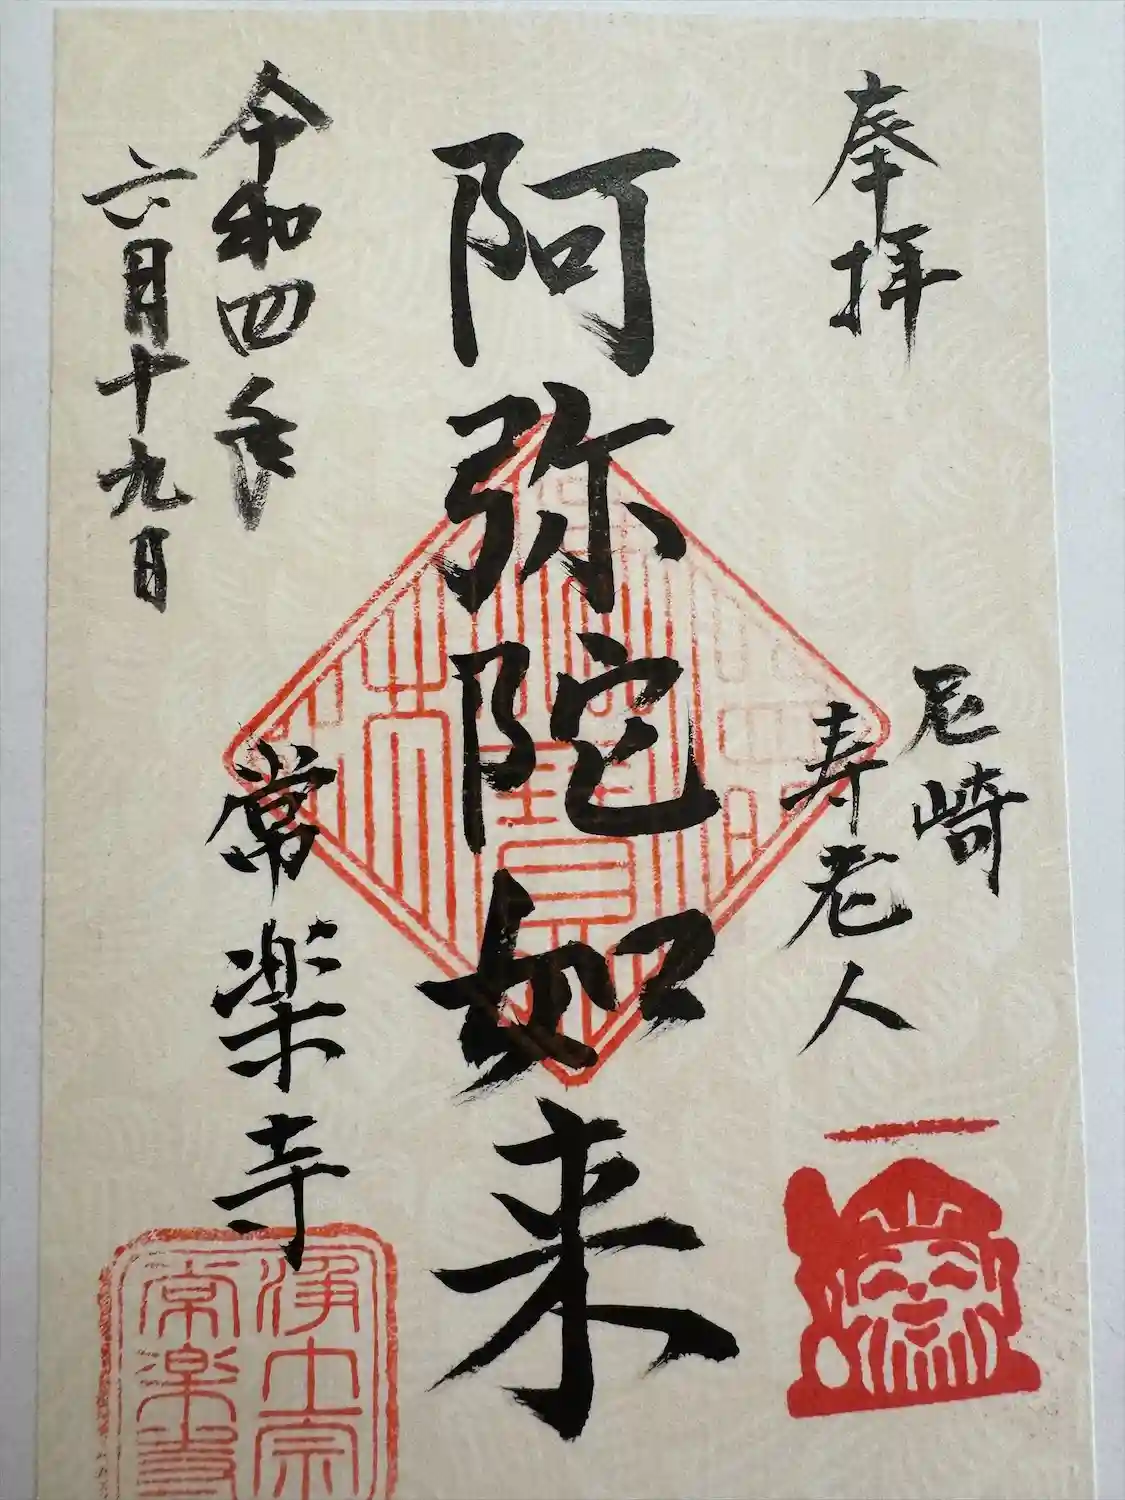 奉拝
尼崎
寿老人
阿弥陀如来
令和四年
六月十九日
常楽寺
浄土宗
常楽寺